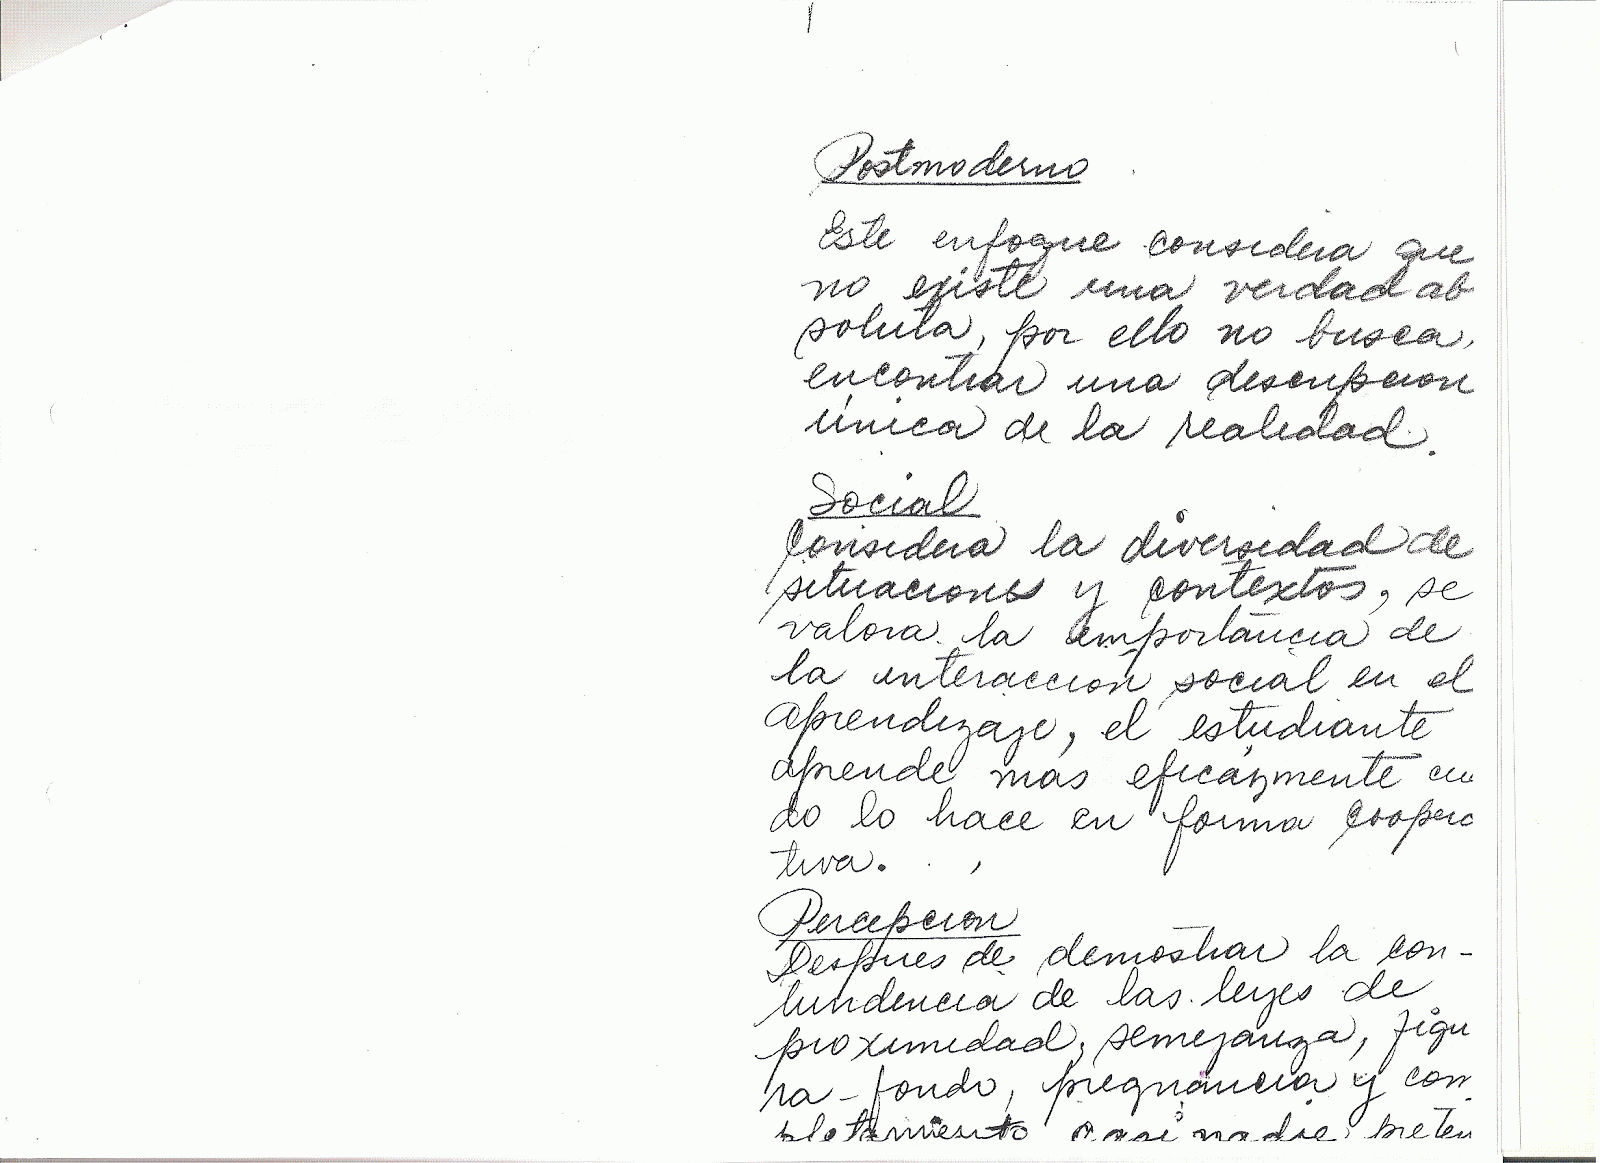 Postmoderno
Este enfoque considera que
no existe una verdad ab
soluta, por ello no busca,
encontrar una descripcion
única de la realidad.
Social
Considera la diversidad de
situaciones y contextos, se
valora la importancia de
la interaccion social en el
aprendizaje, el estudiante
aprende mas eficázmente cu
do lo hace en forma coopera
tiva.
Percepcion
Despues de demostrar la con-
tundencia de las leyes de
proximidad, semejanza, figu
ra-fondo, pregnancia y com
pletamiento casi nadie preten